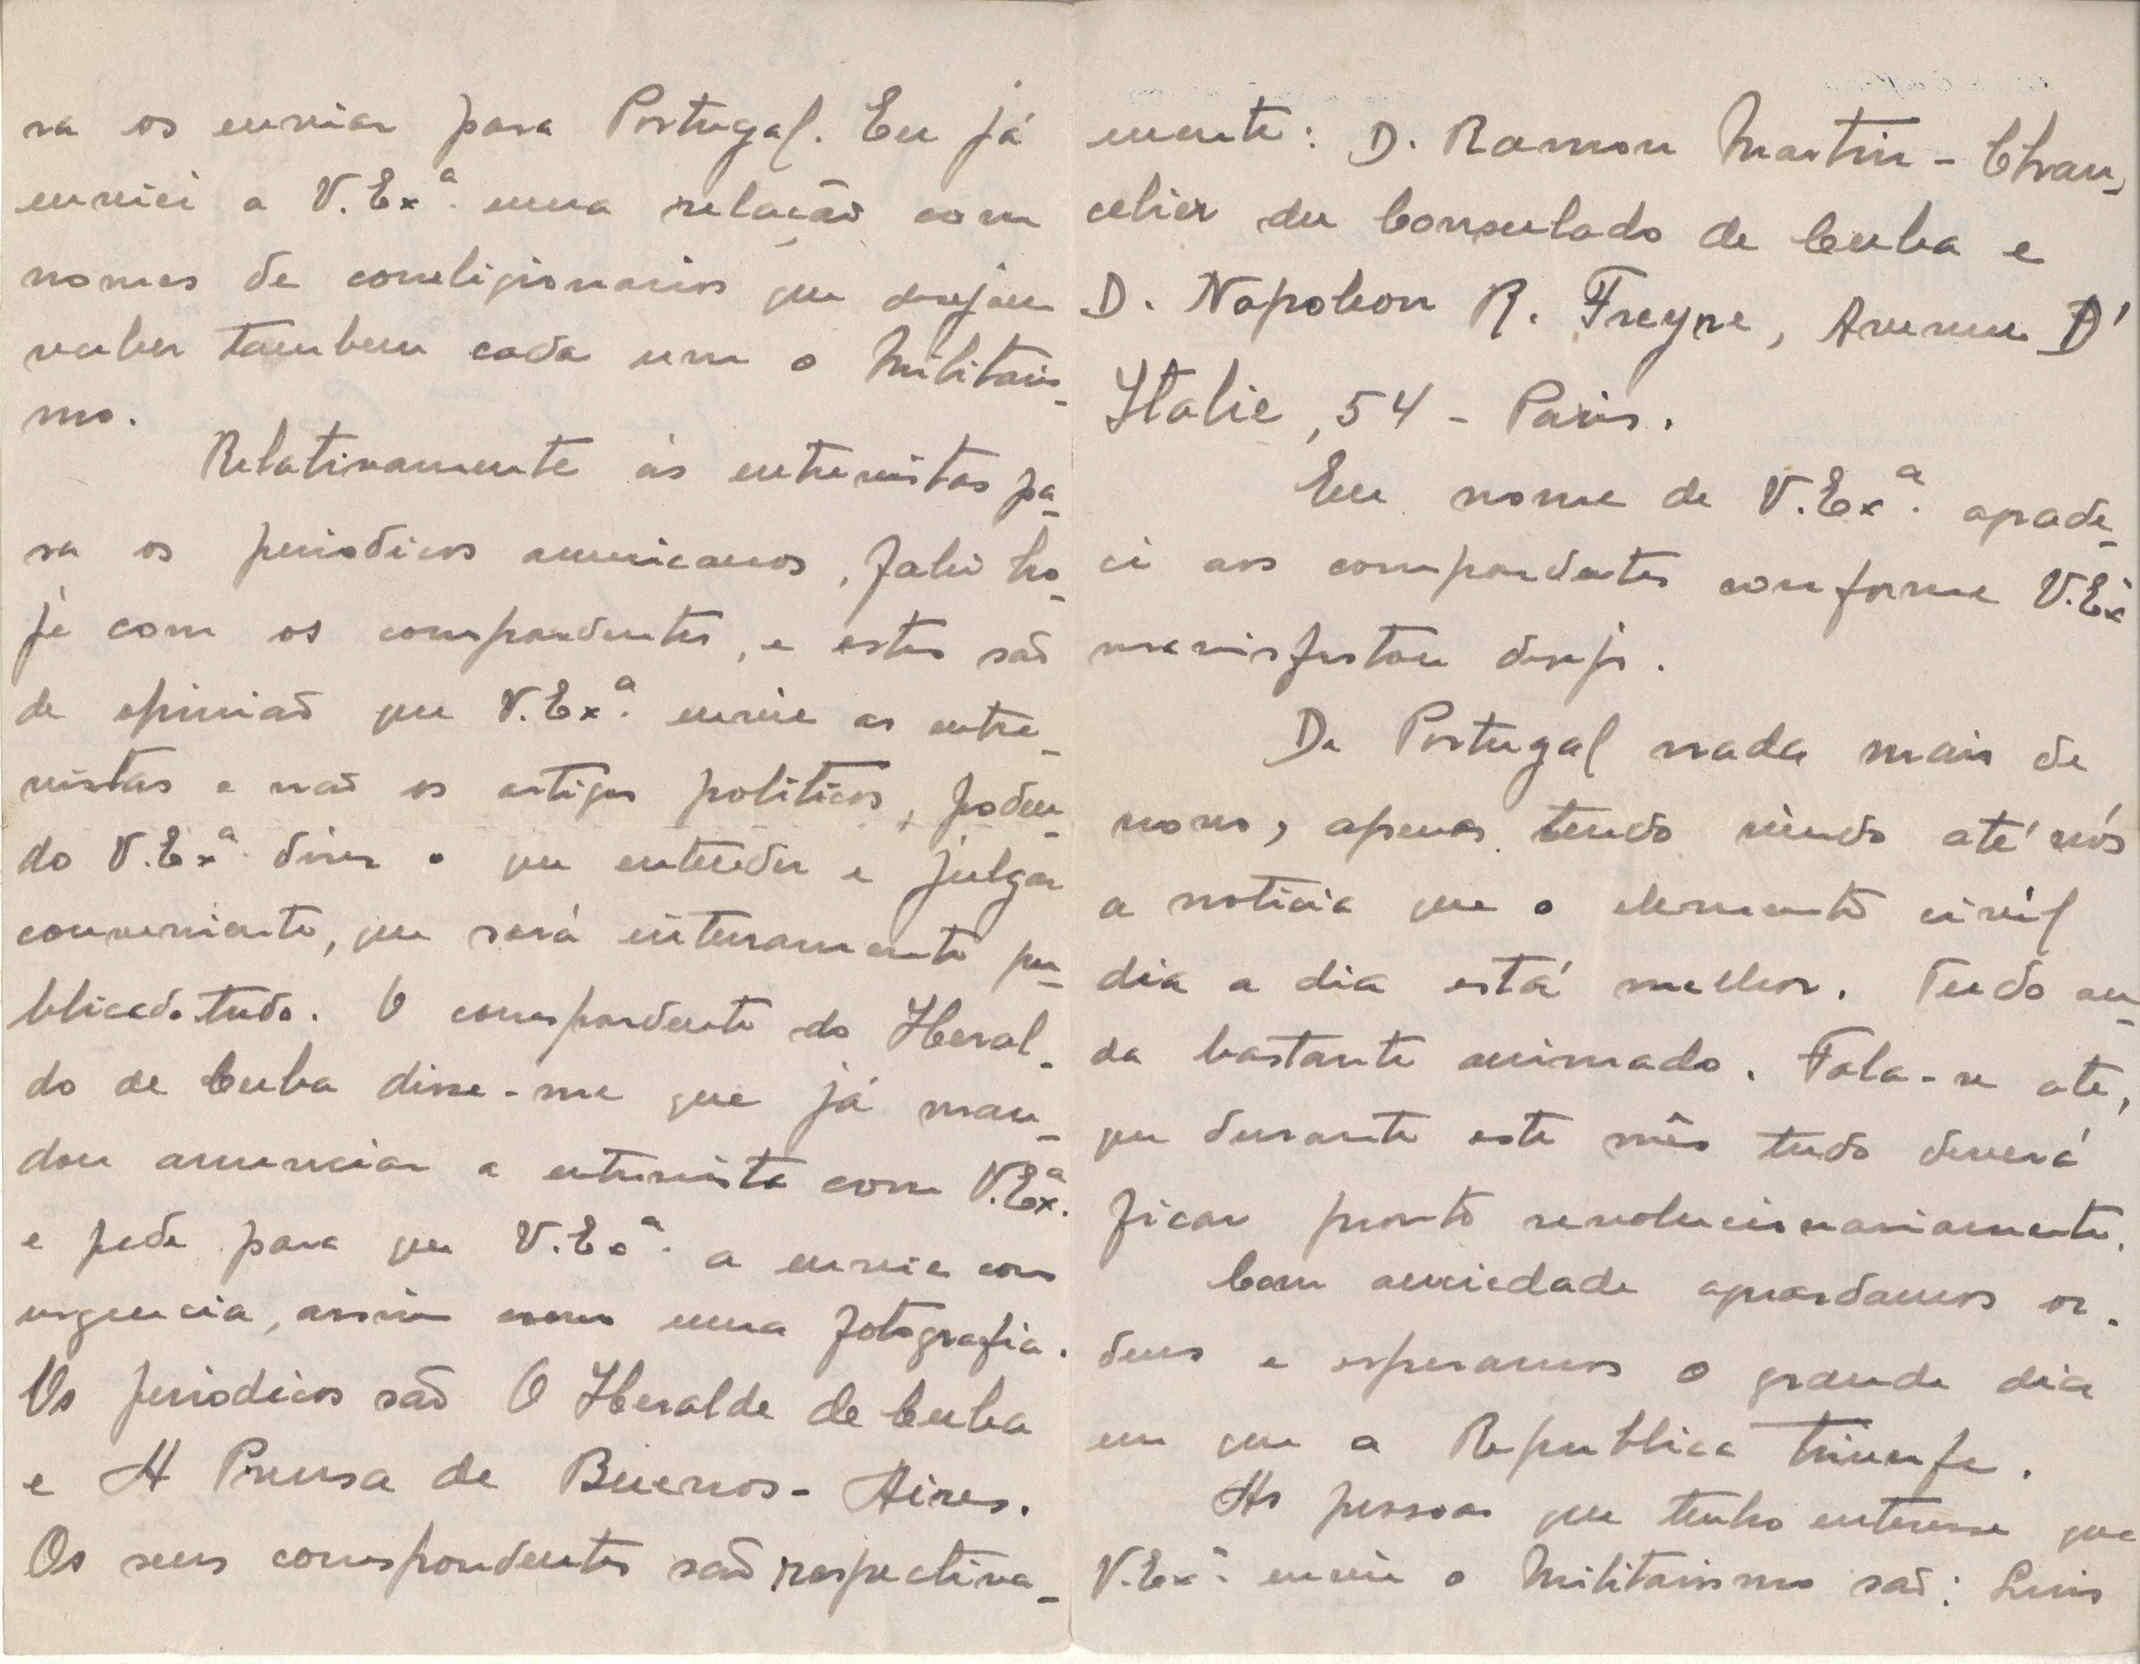 ra os enviar para Portugal. Eu já
enviei a V. Exª. uma relação com
nomes de correligionarios que desejam
receber tambem cada um o Militaris-
mo.
Relativamente ás entrevistas pa-
ra os periodicos americanos, falei ho-
je com os correspondentes, e estes são
de opinião que V. Exª. envie as entre-
vistas e não os artigos politicos, poden-
do V. Exª. dizer o que entender e julgar
conveniente, que será inteiramente pu-
blicado tudo. O correspondente do Heral-
do de Cuba disse-me que já man-
dou anunciar a entrevista com V. Exª.
e pede para que V. Exª. a envie com
urgencia, assim como uma fotografia.
Os periodicos são O Heralde de Cuba
e A Prensa de Buenos-Aires.
Os seus correspondentes são respectiva-
mente: D. Ramon Martin - Chan-
celier du Consulado de Cuba e
D. Napoleon R. Freyre, Avenue D'
Italie, 54 - Paris.
Em nome de V. Exª. agrade-
ci aos correspondentes conforme V. Exª
manisfestou desejo.
De Portugal nada mais de
novo, apenas tendo vindo até nós
a noticia que o elemento civil
dia a dia está melhor. Tudo an-
da bastante animado. Fala-se até,
que durante este mês tudo deverá
ficar pronto revolucionariamente.
Com anciedade aguardamos or-
dens e esperamos o grande dia
em que a Republica triunfe.
As pessoas que tenho enteresse que
V. Exª. envie o Militarismo são: Luis